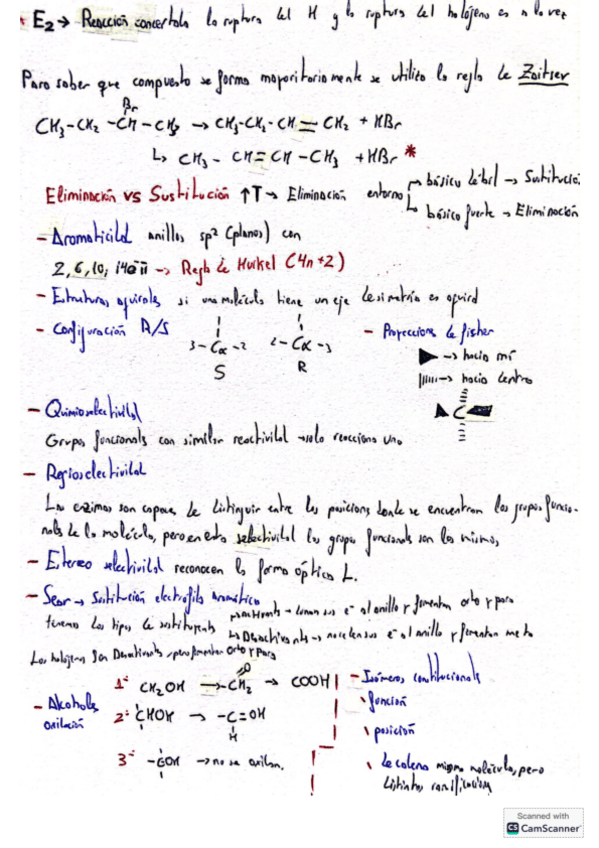 * E2 → Reacción concertada la ruptura del H y la ruptura del halógeno es a la vez
Para saber que compuesto se forma mayoritariamente se utiliza la regla de Zaitsev
Br
CH3-CH2-CH-CH3 → CH3-CH2-CH=CH2 + HBr
↳ CH3-CH=CH-CH3 + HBr *
Eliminación vs Sustitución ↑T → Eliminación entorno
básico débil → Sustitució
básico fuerte → Eliminación
- Aromaticidad anillos sp² (planos) con
2, 6, 10, 14 e⁻π → Regla de Huckel (4n+2)
- Estruturas aquirales si una molécula tiene un eje de simetría es aquiral
- Configuración R/S
3-Cα-2
S
2-Cα-3
R
- Proyeccions de fisher
→ hacia mí
→ hacia dentro
C
- Quimioselectividad
Grupos funcionals con similar reactividad → solo reacciona uno
- Regioselectividad
Las enzimas son capaces de distinguir entre las posicions donde se encuentran los grupos funcio-
nals de la molécula, pero en esta selectividad los grupos funcionals son los mismos,
- Estereo selectividad reconocen la forma óptica L.
- Sear → Sustitución electrófila aromática
tenemos dos tipos de sustituyents
Activants → donan sus e⁻ al anillo y fomentan orto y para
↳ Desactivants → no cede sus e⁻ al anillo y fomentan meta
Los halógenos son Desactivants, pero fomentan orto y para
- Alcohols
oxidación
1º CH2OH → -CH2 → COOH
O
2º CHOH → -C=OH
H
3º -COH → no se oxidan.
- Isómeros constitucionals
función
posición
de cadena misma molécula, pero
distintas ramificacions
Scanned with
CS CamScanner